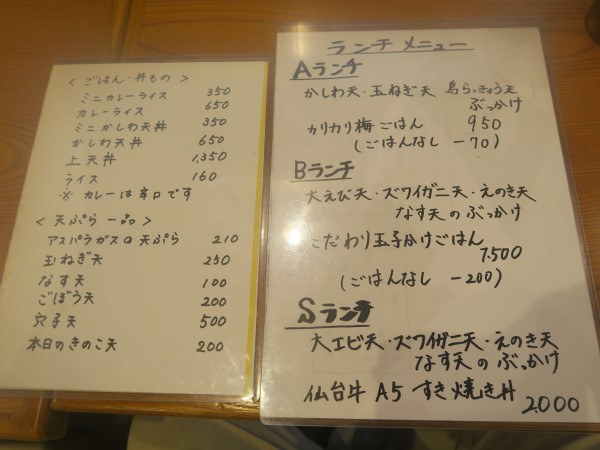 < ごはん・丼もの >
ミニカレーライス 350
カレーライス 650
ミニかしわ天丼 350
かしわ天丼 650
上天丼 1,350
ライス 160
※ カレーは辛口です
< 天ぷら 一品 >
アスパラガスの天ぷら 210
玉ねぎ天 250
なす天 100
ごぼう天 200
穴子天 500
本日のきのこ天 200
ランチ メニュー
Aランチ
かしわ天・玉ねぎ天 島らっきょう天
ぶっかけ
カリカリ梅ごはん 950
(ごはんなし -70)
Bランチ
大えび天・ズワイガニ天・えのき天
なす天 の ぶっかけ
こだわり玉子かけごはん
1,500
(ごはんなし -200)
Sランチ
大エビ天・ズワイガニ天・えのき天
なす天 の ぶっかけ
仙台牛 A5 すき焼き丼 2,000